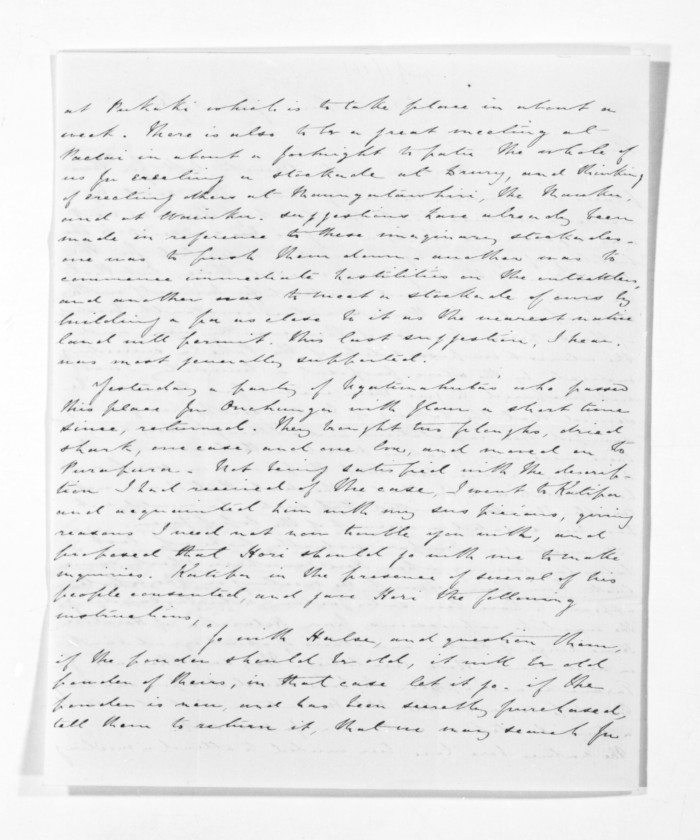 at Pukaki which is to take place in about a
week. There is also to be a great meeting at
Paetai in about a fortnight to patu the whole of
us for erecting a stockade at Drury, and thinking
of erecting others at Maungatawhiri, the Mauku,
and at Waiuku. Suggestions have already been
made in reference to these imaginary stockades -
one was to push them down - another was to
commence immediate hostilities on the outsettlers,
and another was to meet a stockade of ours by
building a pa as close to it as the nearest native
land will permit. This last suggestion, I hear,
was most generally supported.
Yesterday a party of Ngatimahuta's who passed
this place for Onehunga with flour a short time
since, returned. They brought two ploughs, dried
shark, one case, and one box, and moved on to
Purapura. Not being satisfied with the descrip-
tion I had received of the case, I went to Katipa
and acquainted him with my suspicions, giving
reasons I need not now trouble you with, and
proposed that Hori should go with me to make
inquiries. Katipa in the presence of several of his
people consented, and gave Hori the following
instructions,
Go with Hulse, and question them,
if the powder should be old, it will be old
powder of theirs, in that case let it go - if the
powder is new, and has been secretly purchased,
tell them to return it, that we may search for